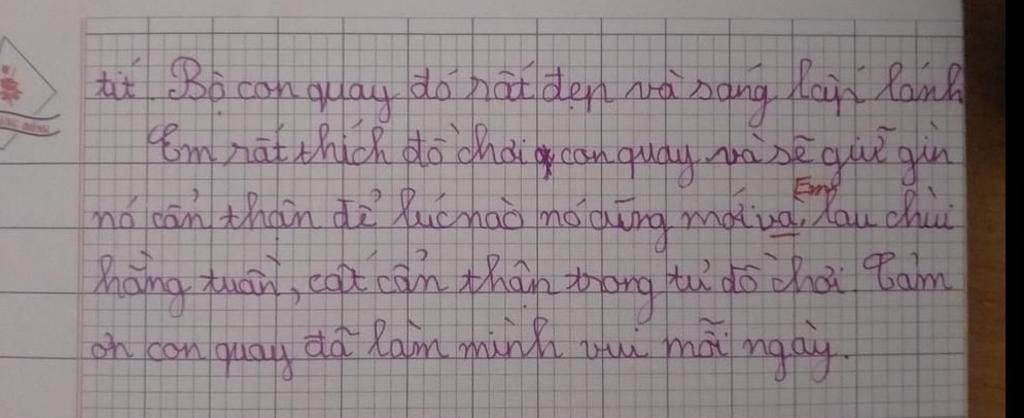 tít. Bộ con quay đó rất đẹp và sáng lấp lánh
Em rất thích đồ chơi con quay và sẽ giữ gìn
nó cẩn thận để lúc nào nó cũng mới va, Em lau chùi
hằng tuần, cất cẩn thận trong tủ đồ chơi. Cảm
ơn con quay đã làm mình vui mỗi ngày.